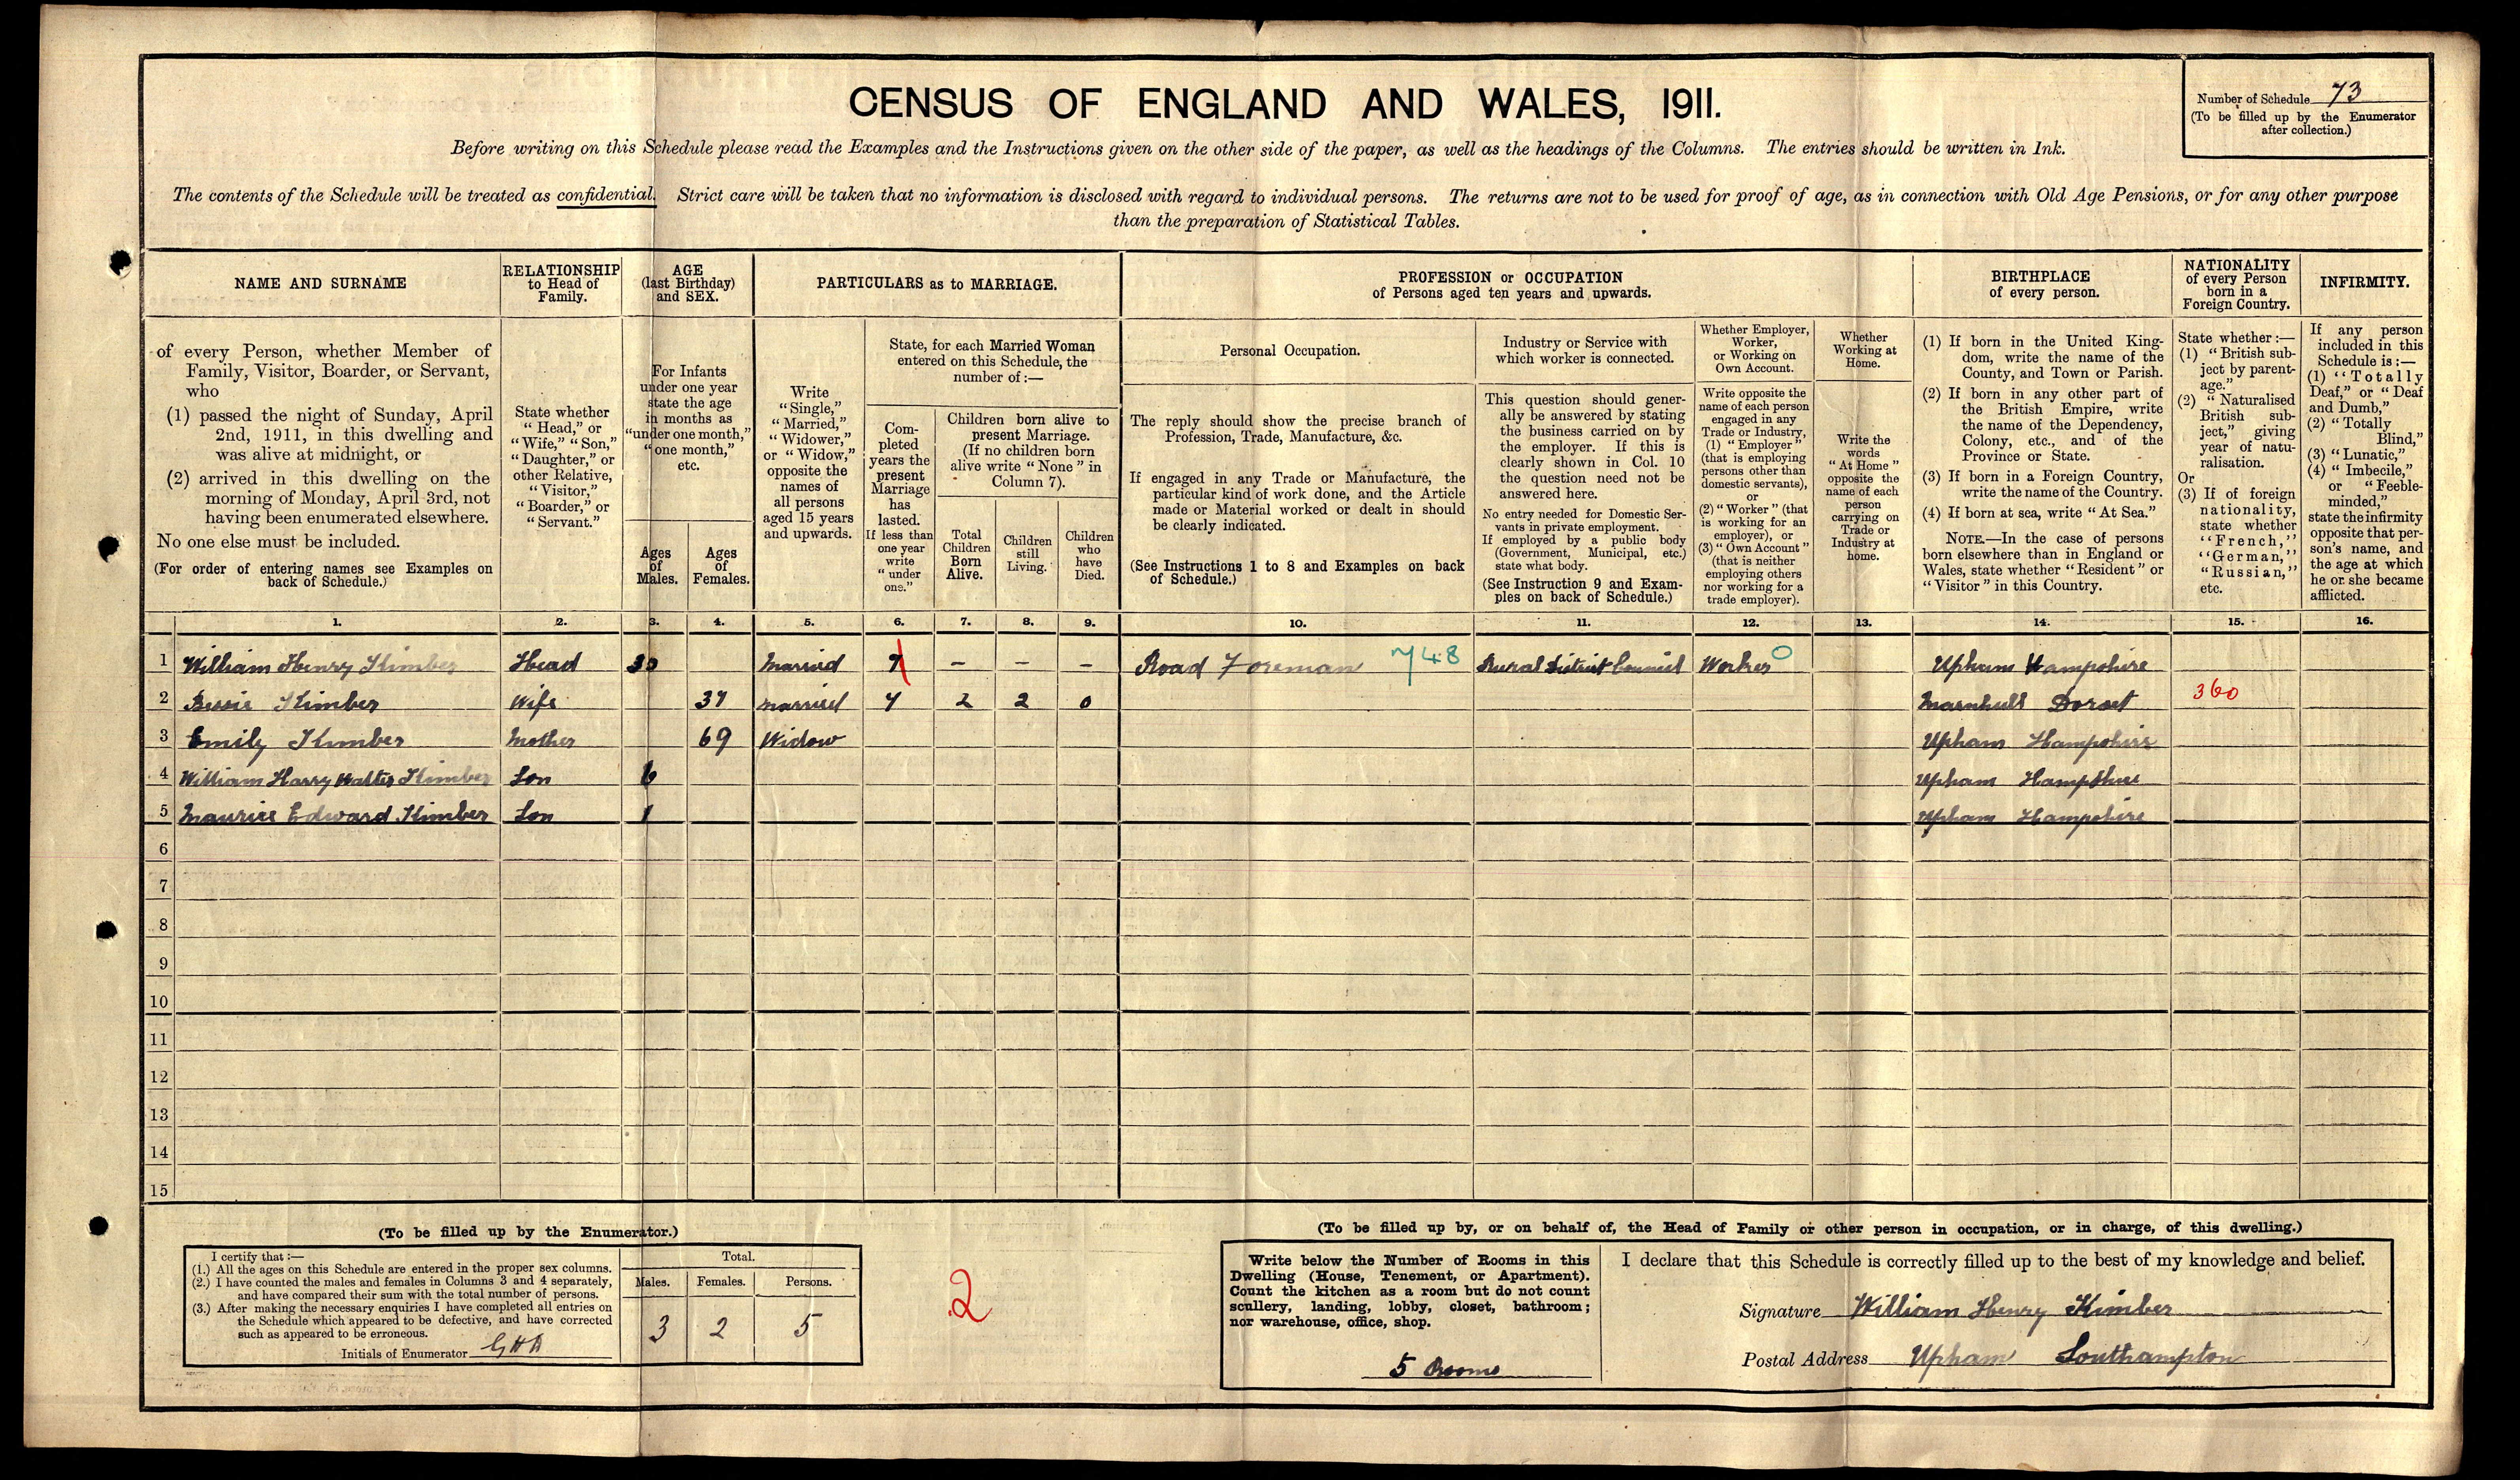 CENSUS OF ENGLAND AND WALES, 1911.
Number of Schedule 73
(To be filled up by the Enumerator
after collection.)
Before writing on this Schedule please read the Examples and the Instructions given on the other side of the paper, as well as the headings of the Columns. The entries should be written in Ink.
The contents of the Schedule will be treated as confidential. Strict care will be taken that no information is disclosed with regard to individual persons. The returns are not to be used for proof of age, as in connection with Old Age Pensions, or for any other purpose
than the preparation of Statistical Tables.
NAME AND SURNAME
of every Person, whether Member of
Family, Visitor, Boarder, or Servant,
who
(1) passed the night of Sunday, April
2nd, 1911, in this dwelling and
was alive at midnight, or
(2) arrived in this dwelling on the
morning of Monday, April 3rd, not
having been enumerated elsewhere.
No one else must be included.
(For order of entering names see Examples on
back of Schedule.)
RELATIONSHIP
to Head of
Family.
State whether
"Head," or
"Wife," "Son,"
"Daughter," or
other Relative,
"Visitor,"
"Boarder," or
"Servant."
AGE
(last Birthday)
and SEX.
For Infants
under one year
state the age
in months as
"under one month,"
"one month,"
etc.
Ages
of
Males.
Ages
of
Females.
PARTICULARS as to MARRIAGE.
Write
"Single,"
"Married,"
"Widower,"
or "Widow,"
opposite the
names of
all persons
aged 15 years
and upwards.
State, for each Married Woman
entered on this Schedule, the
number of :—
Com-
pleted
years the
present
Marriage
has
lasted.
If less than
one year
write
"under
one."
Children born alive to
present Marriage.
(If no children born
alive write "None" in
Column 7).
Total
Children
Born
Alive.
Children
still
Living.
Children
who
have
Died.
PROFESSION or OCCUPATION
of Persons aged ten years and upwards.
Personal Occupation.
The reply should show the precise branch of
Profession, Trade, Manufacture, &c.
If engaged in any Trade or Manufacture, the
particular kind of work done, and the Article
made or Material worked or dealt in should
be clearly indicated.
(See Instructions 1 to 8 and Examples on back
of Schedule.)
Industry or Service with
which worker is connected.
This question should gener-
ally be answered by stating
the business carried on by
the employer. If this is
clearly shown in Col. 10
the question need not be
answered here.
No entry needed for Domestic Ser-
vants in private employment.
If employed by a public body
(Government, Municipal, etc.)
state what body.
(See Instruction 9 and Exam-
ples on back of Schedule.)
Whether Employer,
Worker,
or Working on
Own Account.
Write opposite the
name of each person
engaged in any
Trade or Industry,
(1) "Employer"
(that is employing
persons other than
domestic servants),
or
(2) "Worker" (that
is working for an
employer), or
(3) "Own Account"
(that is neither
employing others
nor working for a
trade employer).
Whether
Working at
Home.
Write the
words
"At Home"
opposite the
name of each
person
carrying on
Trade or
Industry at
home.
BIRTHPLACE
of every person.
(1) If born in the United King-
dom, write the name of the
County, and Town or Parish.
(2) If born in any other part of
the British Empire, write
the name of the Dependency,
Colony, etc., and of the
Province or State.
(3) If born in a Foreign Country,
write the name of the Country.
(4) If born at sea, write "At Sea."
NOTE.—In the case of persons
born elsewhere than in England or
Wales, state whether "Resident" or
"Visitor" in this Country.
NATIONALITY
of every Person
born in a
Foreign Country.
State whether :—
(1) "British sub-
ject by parent-
age."
(2) "Naturalised
British sub-
ject," giving
year of natu-
ralisation.
Or
(3) If of foreign
nationality,
state whether
"French,"
"German,"
"Russian,"
etc.
INFIRMITY.
If any person
included in this
Schedule is :—
(1) "Totally
Deaf," or "Deaf
and Dumb,"
(2) "Totally
Blind,"
(3) "Lunatic,"
(4) "Imbecile,"
or "Feeble-
minded,"
state the infirmity
opposite that per-
son's name, and
the age at which
he or she became
afflicted.
1. 2. 3. 4. 5. 6. 7. 8. 9. 10. 11. 12. 13. 14. 15. 16.
1 William Henry Kimber Head Married 7 – – – Road Foreman 748 Rural District Council Worker 0 Upham Hampshire
2 Bessie Kimber Wife 37 Married 7 2 2 0 Marnhull Dorset 360
3 Emily Kimber Mother 69 Widow Upham Hampshire
4 William Harry Walter Kimber Son 6 Upham Hampshire
5 Maurice Edward Kimber Son 1 Upham Hampshire
6
7
8
9
10
11
12
13
14
15
(To be filled up by the Enumerator.)
I certify that :—
(1.) All the ages on this Schedule are entered in the proper sex columns.
(2.) I have counted the males and females in Columns 3 and 4 separately,
and have compared their sum with the total number of persons.
(3.) After making the necessary enquiries I have completed all entries on
the Schedule which appeared to be defective, and have corrected
such as appeared to be erroneous.
Initials of Enumerator
Total.
Males. Females. Persons.
3 2 5
2
(To be filled up by, or on behalf of, the Head of Family or other person in occupation, or in charge, of this dwelling.)
Write below the Number of Rooms in this
Dwelling (House, Tenement, or Apartment).
Count the kitchen as a room but do not count
scullery, landing, lobby, closet, bathroom;
nor warehouse, office, shop.
5 Rooms
I declare that this Schedule is correctly filled up to the best of my knowledge and belief.
Signature William Henry Kimber
Postal Address Upham Southampton